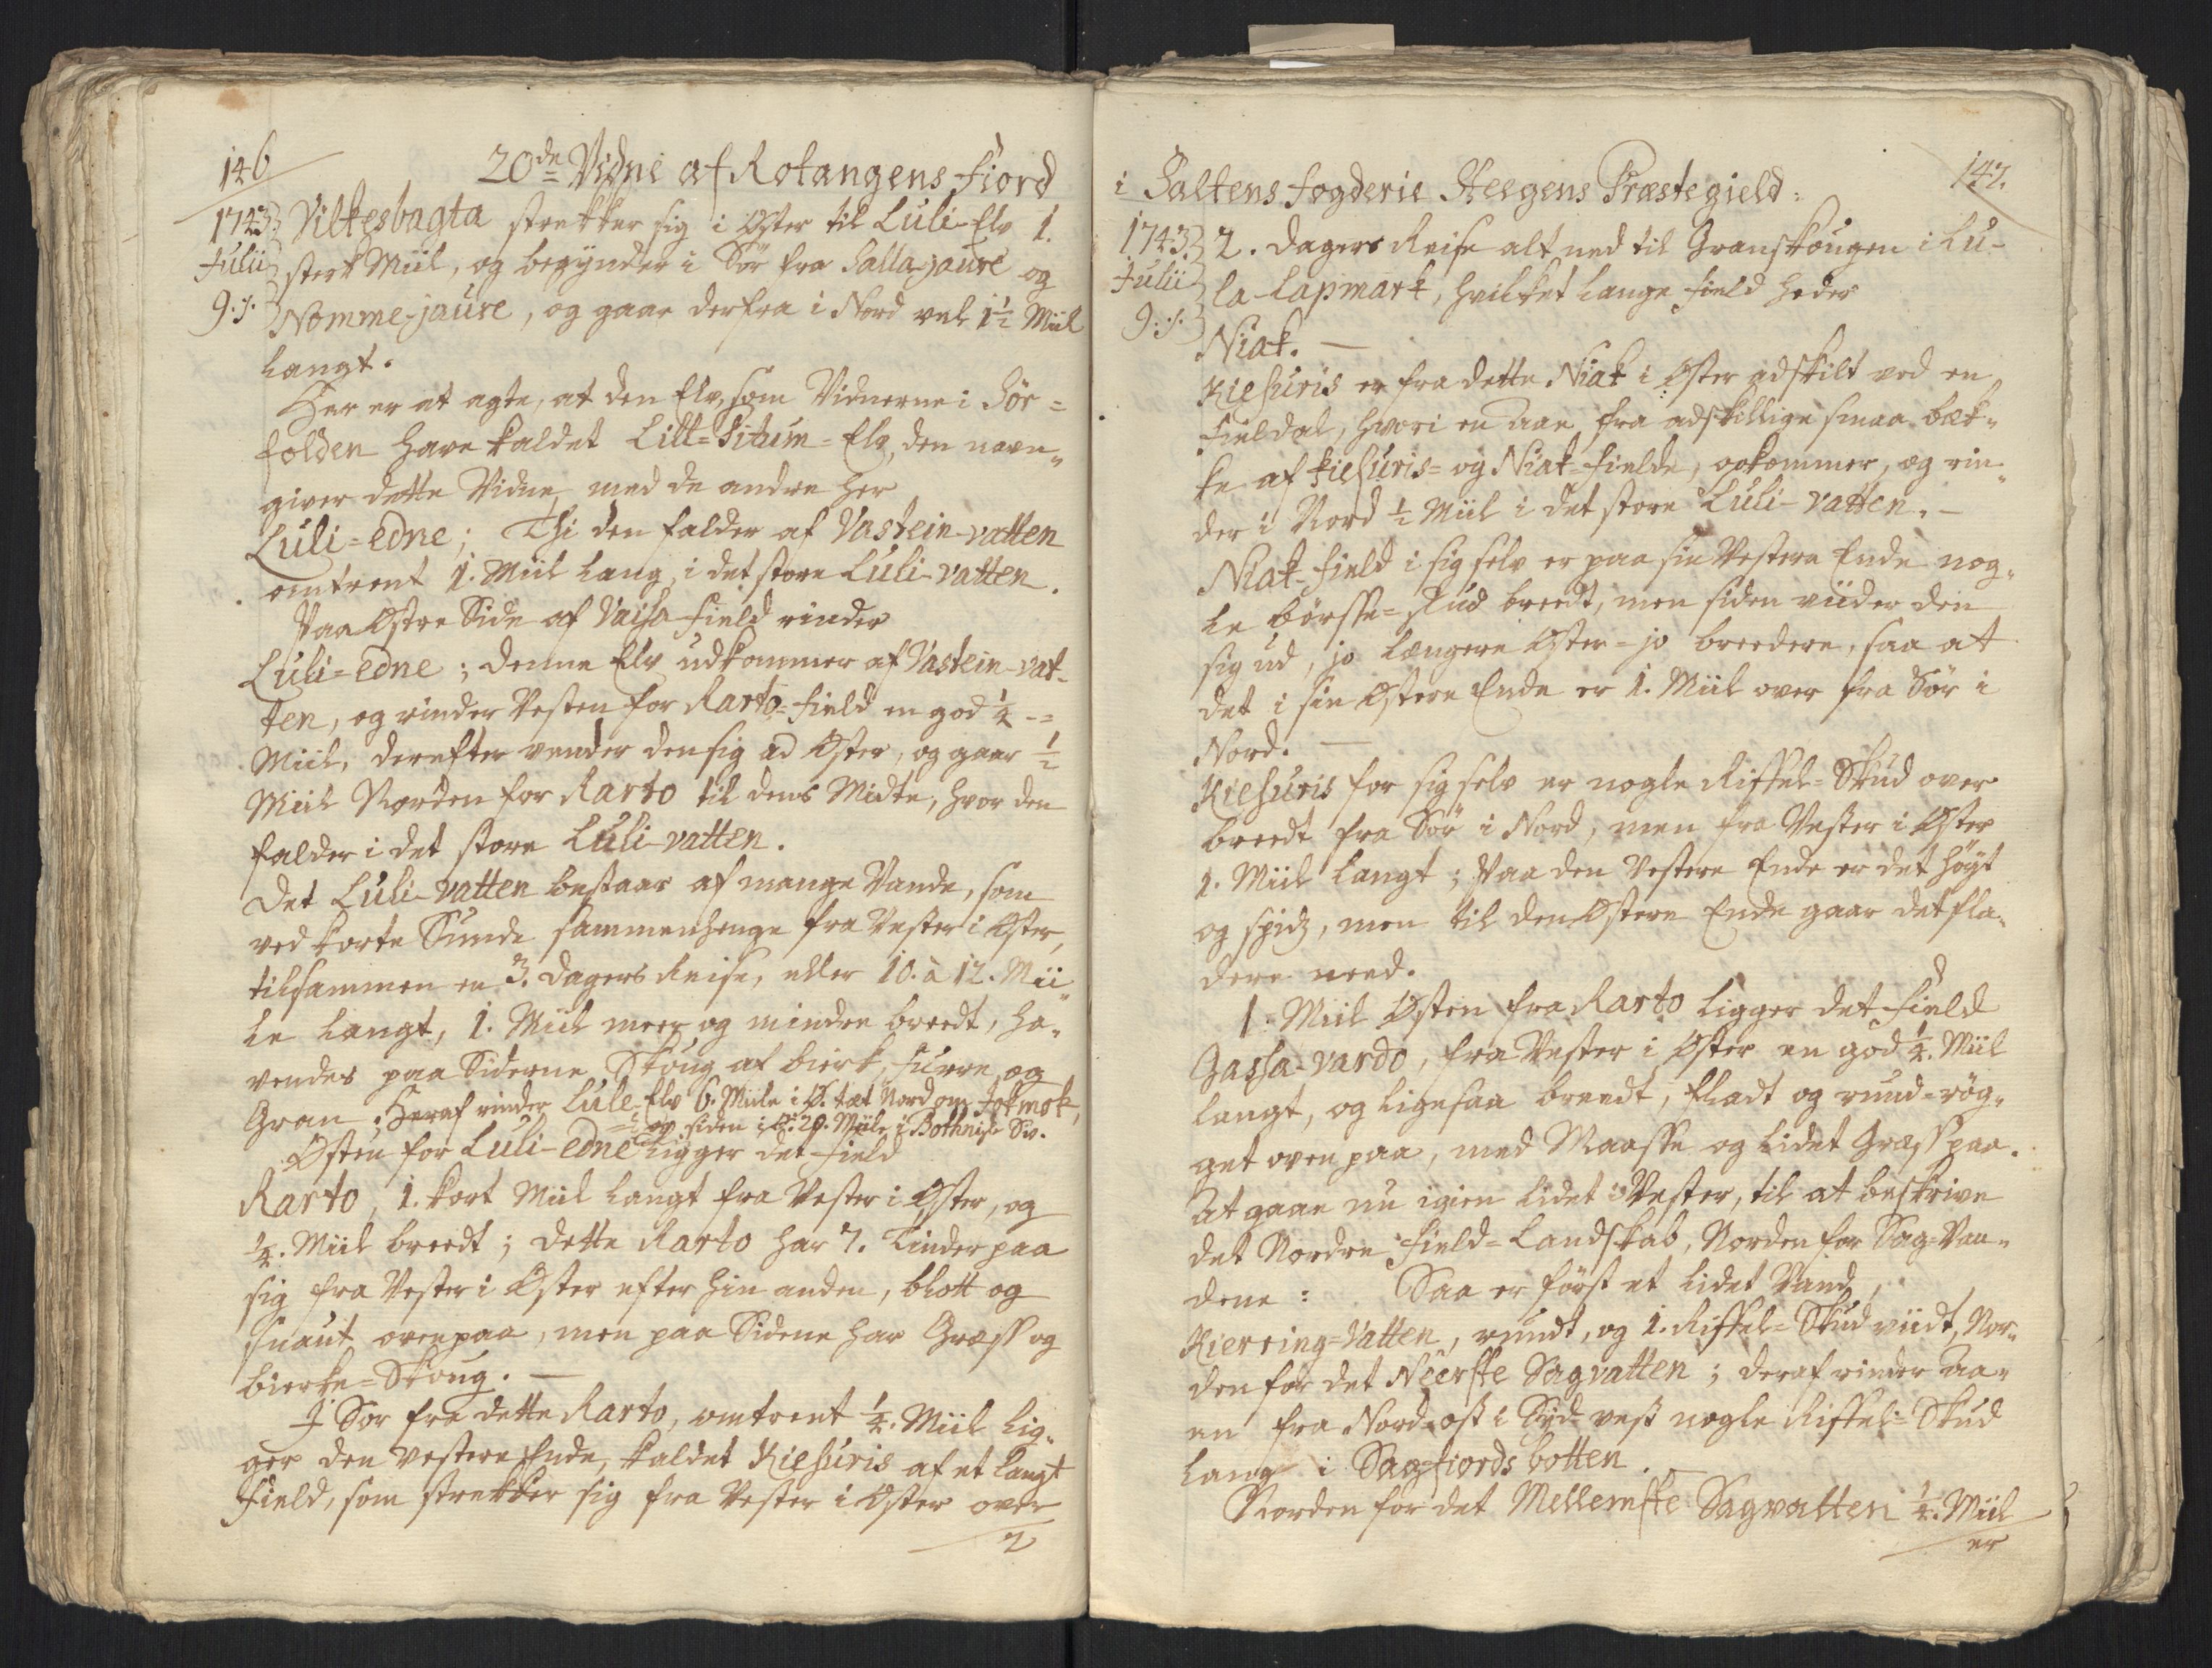 146
20de Vidne af Rotangens Fiord
1743. Vilkesbagta strekker sig i Øster til Luli-Elv 1.
Julii sterk Miil, og begynder i Sör fra Salla-jaure og
9:s: Nomme-jaure, og gaar derfra i Nord vel 1½ Miil
langt.
Her er at agte, at den Elv, som Vidnerne i Sör=
folden have kaldet Lilt=Situm=Elv, den navn„
giver dette Vidne med de andre her
Luli=edne; Thi den falder af Vastein-vatten
omtrent 1. Miil lang, i det store Luli-vatten.
Paa Østre Side af Vaisa Field rinder
Luli=edne; denne Elv udkommer af Vastein-vat-
ten, og rinder Vesten for Rarto=Field en god ¼ -=
Miil, derefter vender den sig ad Øster, og gaar ½
Miil Norden for Rarto til dens Midte, hvor den
falder i det store Luli-vatten.
Det Luli-vatten bestaar af mange Vande, som
ved korte Sunde sammenhenge fra Vester i Øster,
tilsammen en 3. dagers Reise, eller 10. à 12. Mii„
le langt, 1. Miil meer og mindre breedt, ha„
vendes paa Siderne Skoug af bierk, furre, og
Gran; Heraf rinder Lule Elv 6. Miile i Ø. tæt Nord om Jokmok,
og siden i Ø: 20. Miile i Bothniske Siv.
Østen for Luli-edne ligger det Field
Rarto, 1. kort Miil langt fra Vester i Øster, og
¼. Miil breedt; dette Rarto har 7. Tinder paa
sig fra Vester i Øster efter hin anden, blott og
snaut ovenpaa, men paa Sidene har Græss og
bierke=Skoug. —
I Sör fra dette Rarto, omtrent ¼. Miil lig„
ger den vestere Ende, kaldet Kiesuris af et langt
Field, som strekker sig fra Vester i Øster over
2
i Saltens Fogderie Hergens Præstegield:
147.
1743. 2. dagers Reise alt ned til Granskougen i Lu-
Julii la-lapmark, hvilket lange Field heder
9:s: Niak. —
Kiesuris er fra dette Niak i Øster adskilt ved en
Fieldal, hvori en Aae fra adskillige smaa bæk„
ke af Kiesuris= og Niak-Fielde, opkommer, og rin„
der i Nord ½ Miil i det store Luli-vatten. —
Niak-Field i sig selv er paa sin Vestere Ende nog„
le börsse=skud breedt, men siden viider den
sig ud, jo længere Øster=jo breedere, saa at
det i sin Østere Ende er 1. Miil over fra Sör i
Nord. —
Kiesuris for sig selv er nogle Riffel=Skud over
breedt fra Sör i Nord, men fra Vester i Øster
1. Miil langt; Paa den Vestere Ende er det högt
og spidz, men til den Østere Ende gaar det fla„
dere need.
1. Miil Østen fra Rarto ligger det Field
Gassa-vardo, fra Vester i Øster en god ¼. Miil
langt, og ligesaa breedt, fladt og rund=røg„
get oven paa, med Maasse og lidet Græss paa.
At gaae nu igien lidet i Vester, til at beskrive
det Nordre Field=Landskab, Norden for Sag=Van„
dene: Saa er först et lidet Vand,
Kierring=Vatten, rundt, og 1. Riffel=Skud viidt, Nor„
den for det Neerste Sagvatten; deraf rinder Aa„
en fra Nord=ost i Syd=vest nogle Riffel=Skud
lang i Sagfiords botten.
Norden for det Mellemste Sagvatten ¼. Miil
er